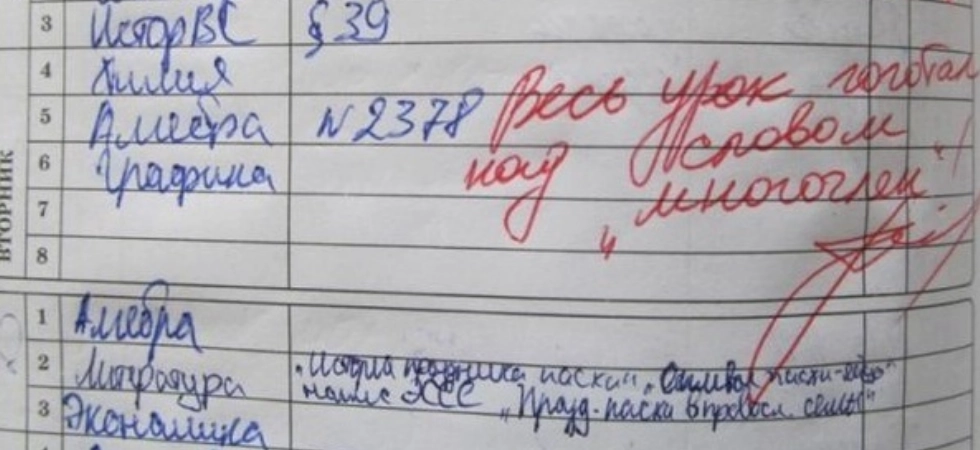 3 ИсторВС § 39
4 Химия
5 Алгебра N 2378
6 Графика
7
8
ВТОРНИК
Весь урок гоготал
над словом
„многочлен"
1 Алгебра
2 Литература „История праздника пасхи", „Символ пасхи-яйцо"
напис ЭССЕ „Празд. пасхи в правосл. семье"
3 Экономика